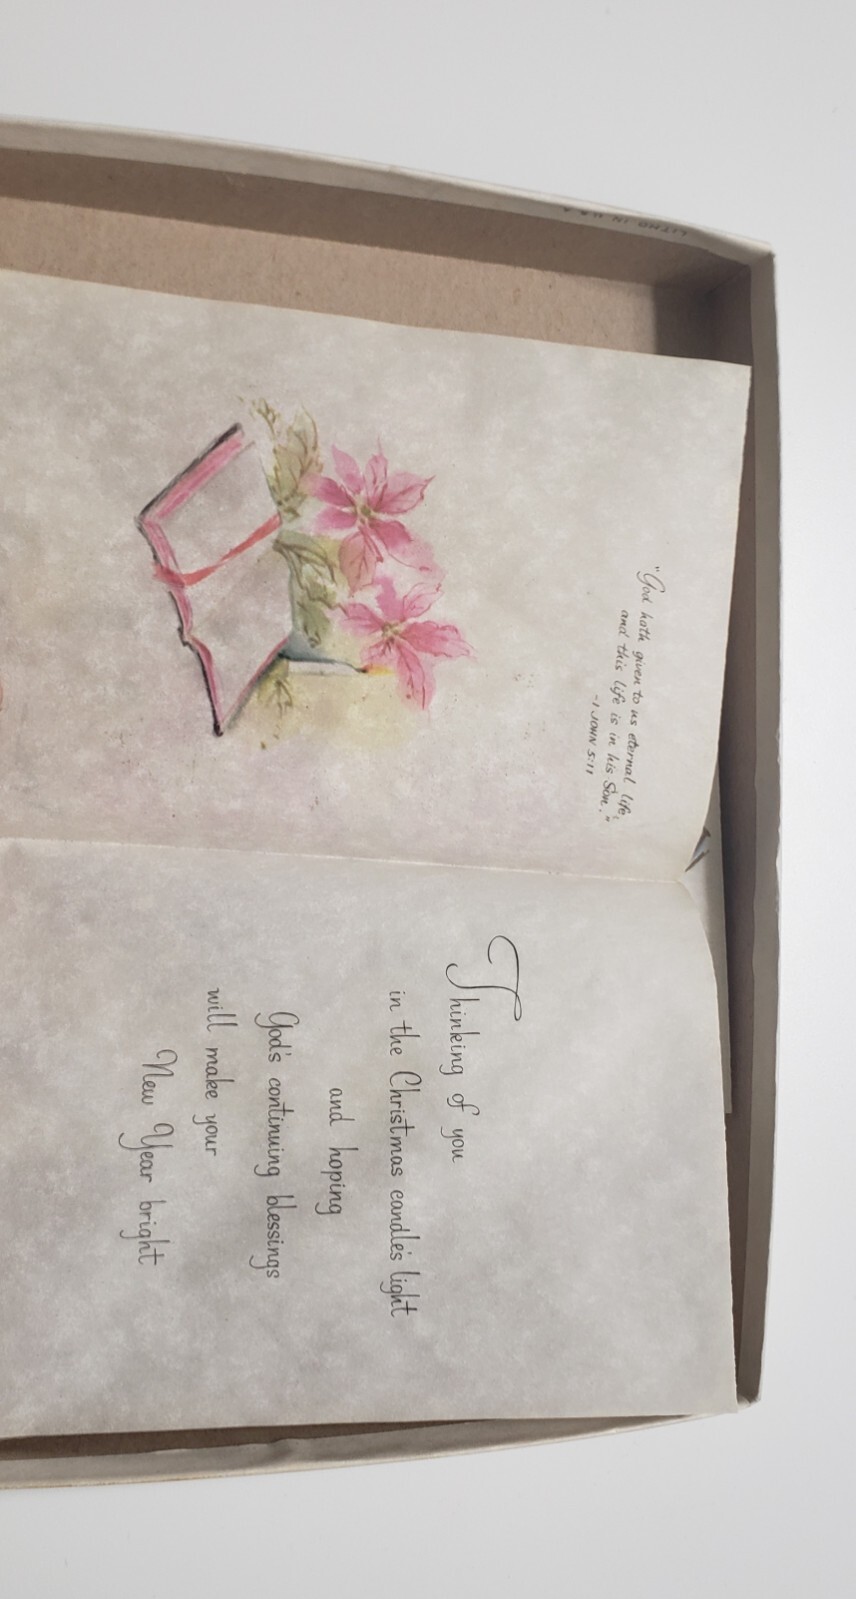 "God hath given to us eternal life,
and this life is in his Son."
-1 JOHN 5:11
Thinking of you
in the Christmas candle's light
and hoping
God's continuing blessings
will make your
New Year bright
LITHO IN U.S.A.